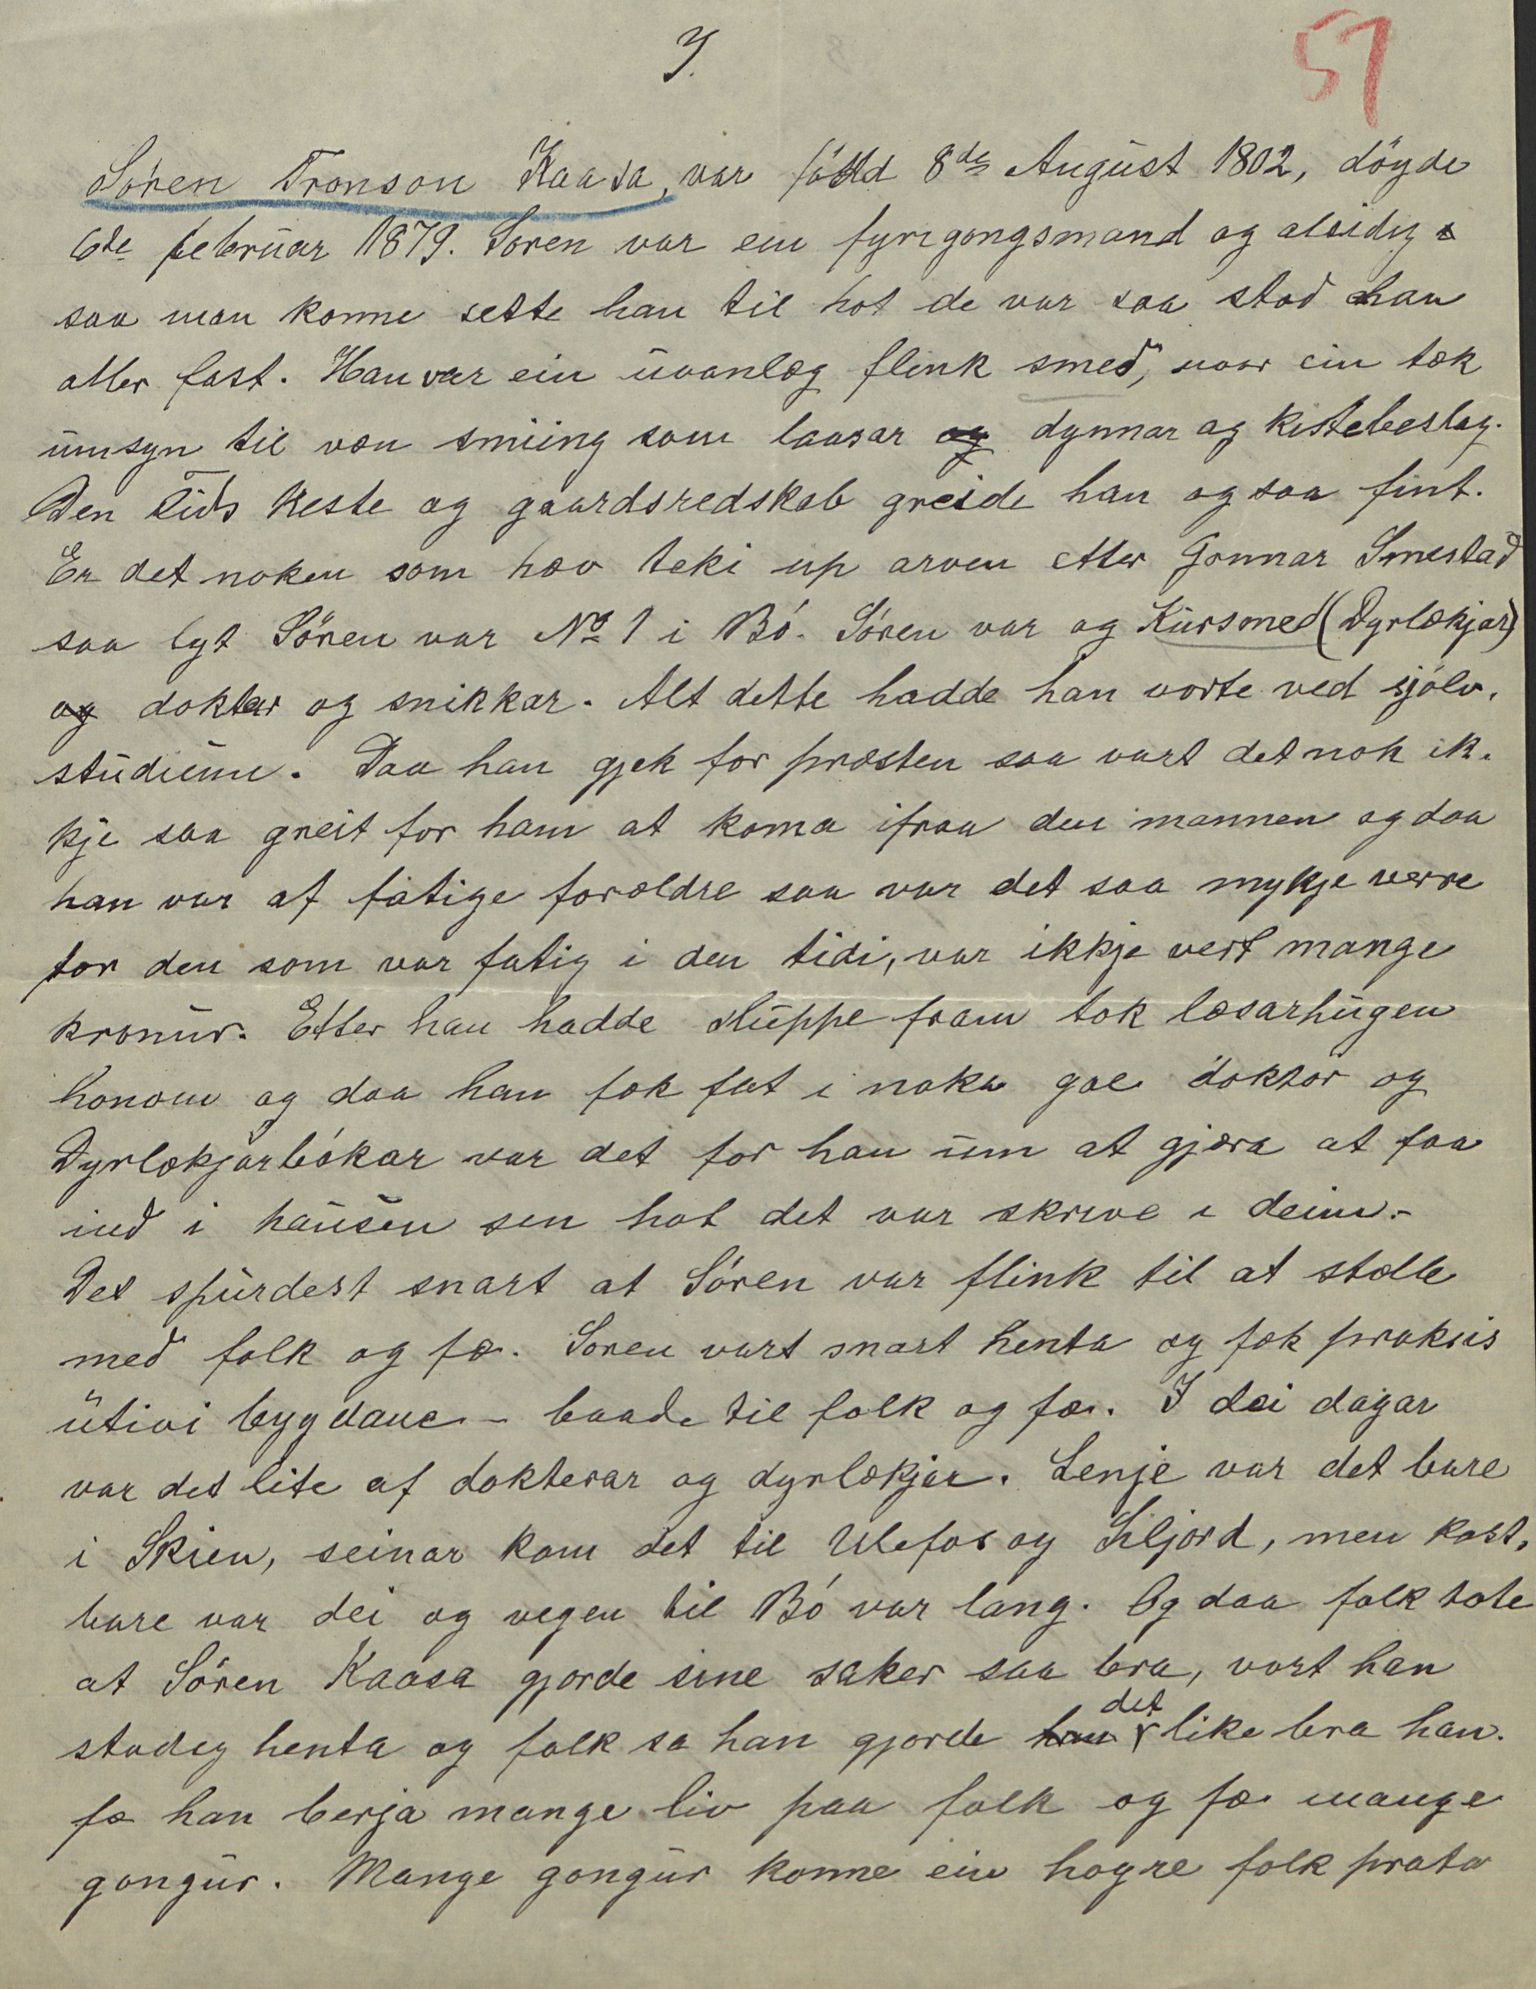 I.
51
Sören Tronson Kaasa, var född 8de August 1802, döyde
6de februar 1879. Soren var ein fyrigongsmand og alsidig
saa man konne sette han til hot de var saa stod han
aller fast. Han var ein uvanlæg flink smed, naar ein tæk
umsyn til væn smiing som laasar og dynnar og kistebeslag.
Den tids heste og gaardsredskab greide han og saa fint.
Er det noken som hæv teki up arven etter Gonnar Smestad
saa lyt Sören var No 1 i Bó. Sören var og Kursmed (Dyrlækjar)
og dokter og snikkar. Alt dette hadde han vorte ved sjölv.
studium. Daa han gjek for præsten saa vart det nok ik.
kje saa greit for ham at koma ifraa den mannen og daa
han var af fatige forældre saa var det saa mykje verre
for den som var fatig i den tidi, var ikkje vert mange
kronur. Etter han hadde sluppe fram tok læsarhugen
honom og daa han fæk fat i noka gae doktor og
Dyrlækjarbókar var det for han um at gjæra at faa
ind i hausen sen hot det var skreve i deim.
Det spurdest snart at Sören var flink til at stælle
med folk og fæ. Soren vart snart henta og fæk praksis
utivi bygdane - baade til folk og fæ. I dei dagar
var det lite af dokterar og dyrlækjar. Lenje var det bare
i Skien, seinar kom det til Ulefos og Siljord, men kost.
bare var dei og vegen til Bó var lang. Og daa folk tote
at Sören Kaasa gjorde sine saker saa bra, vort han
stodig henta og folk sa han gjorde han det like bra han.
fæ han berja mange liv paa folk og fæ mange
gongur. Mange gongur konne ein hoyre folk prata